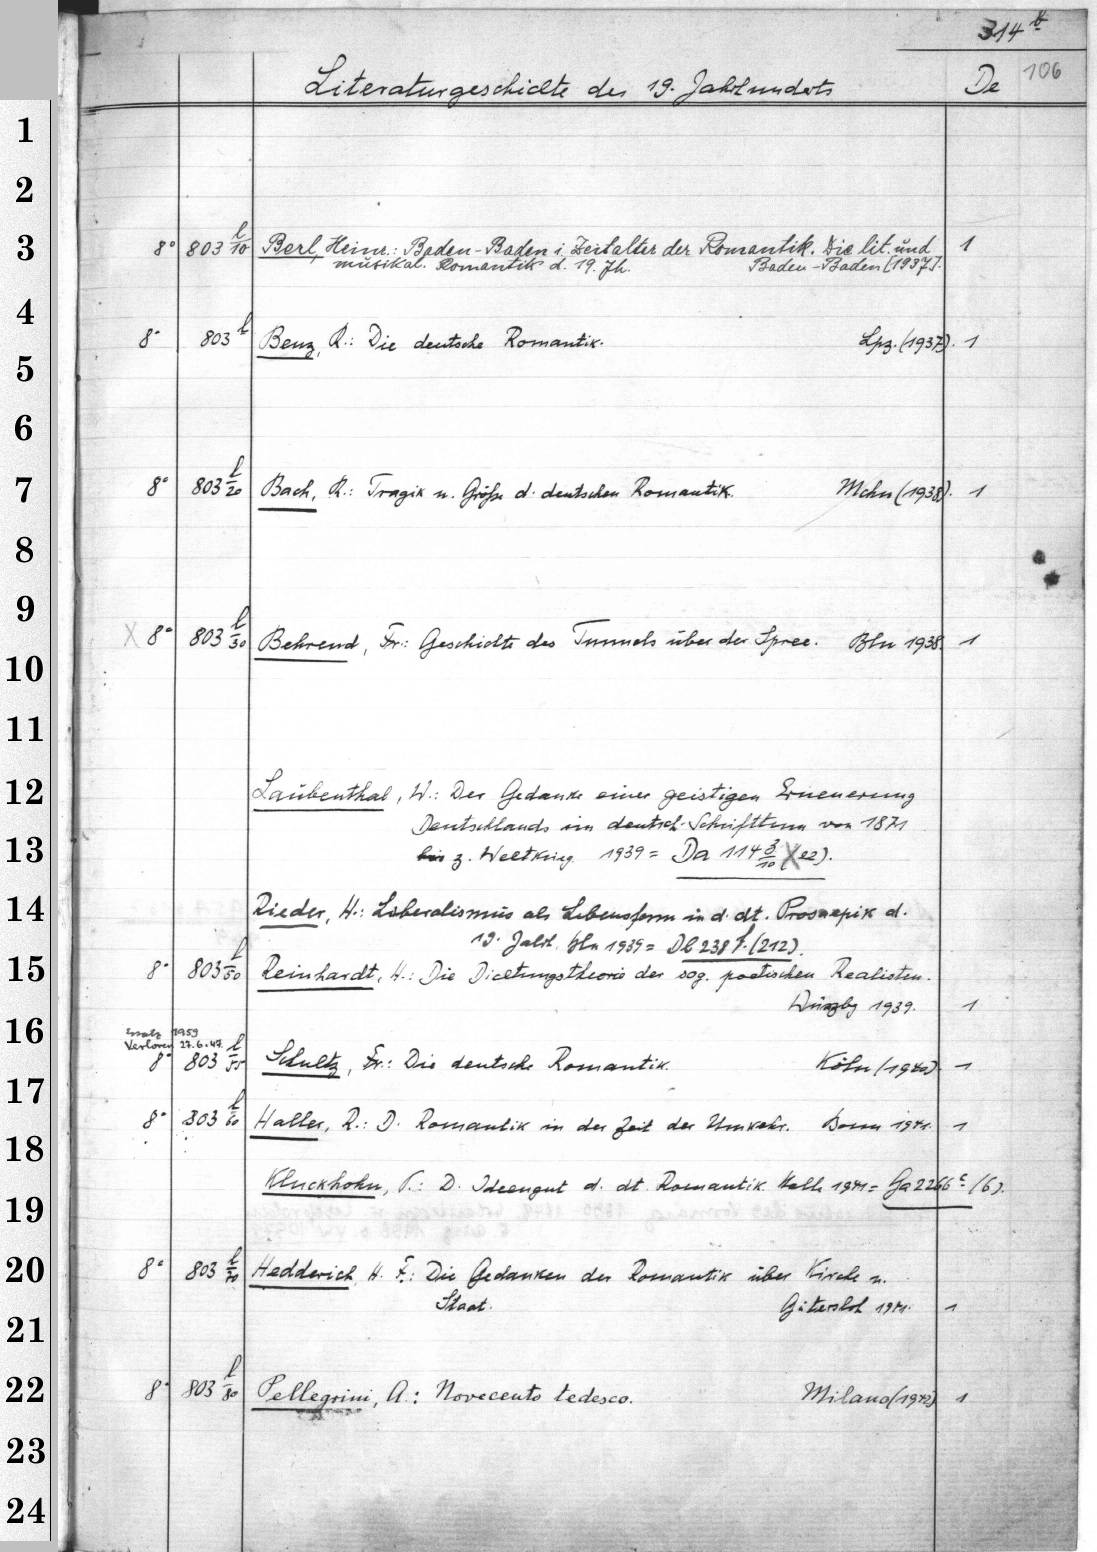 314 b
Literaturgeschichte des 19. Jahrhunderts De 106
1
2
3 8° 803 l/10 Berl, Heinr.: Baden-Baden i. Zeitalter der Romantik. Die lit. und 1
musikal. Romantik d. 19. Jh. Baden-Baden (1937).
4
8° 803 l Benz, R.: Die deutsche Romantik. Lpz. (1937). 1
5
6
7 8° 803 l/20 Bach, R.: Tragik u. Größe d. deutschen Romantik. Mchn (1938). 1
8
9
8° 803 l/30 Behrend, Fr.: Geschichte des Tunnels über der Spree. Bln 1938. 1
10
11
12 Laubenthal, W.: Der Gedanke einer geistigen Erneuerung
Deutschlands im deutsch. Schrifttum von 1871
13 bis z. Weltkrieg 1939 = Da 114 3/10 (22).
14 Rieder, H.: Liberalismus als Lebensform in d. dt. Prosaepik d.
19. Jahrh. Bln 1939 = Db 238 f. (212).
15 8° 803 l/50 Reinhardt, H.: Die Dichtungstheorie der sog. poetischen Realisten.
Würzbg 1939. 1
16 Ersatz 1959
Verloren 27.6.47
8° 803 l/55 Schultz, Fr.: Die deutsche Romantik. Köln (1940) 1
17
8° 803 l/60 Haller, R.: D. Romantik in der Zeit der Umkehr. Bonn 1941. 1
18
Kluckhohn, P.: D. Ideengut d. dt. Romantik Halle 1941 = Ga 2266 c (6).
19
20 8° 803 l/70 Hedderich, H. F.: Die Gedanken der Romantik über Kirche u.
Staat. Gütersloh 1941. 1
21
22 8° 803 l/80 Pellegrini, A.: Novecento tedesco. Milano (1942) 1
23
24